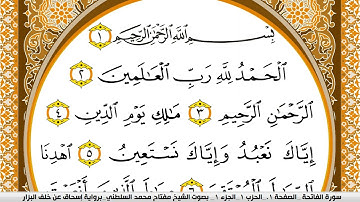 بِسْمِ ٱللَّهِ ٱلرَّحْمَٰنِ ٱلرَّحِيمِ ١
ٱلْحَمْدُ لِلَّهِ رَبِّ ٱلْعَٰلَمِينَ ٢
ٱلرَّحْمَٰنِ ٱلرَّحِيمِ ٣ مَٰلِكِ يَوْمِ ٱلدِّينِ ٤
إِيَّاكَ نَعْبُدُ وَإِيَّاكَ نَسْتَعِينُ ٥ ٱهْدِنَا
سورة الفاتحة.. الصفحة ١.. الحزب ١.. الجزء ١.. بصوت الشيخ مفتاح محمد السلطني.. برواية إسحاق عن خلف البزار